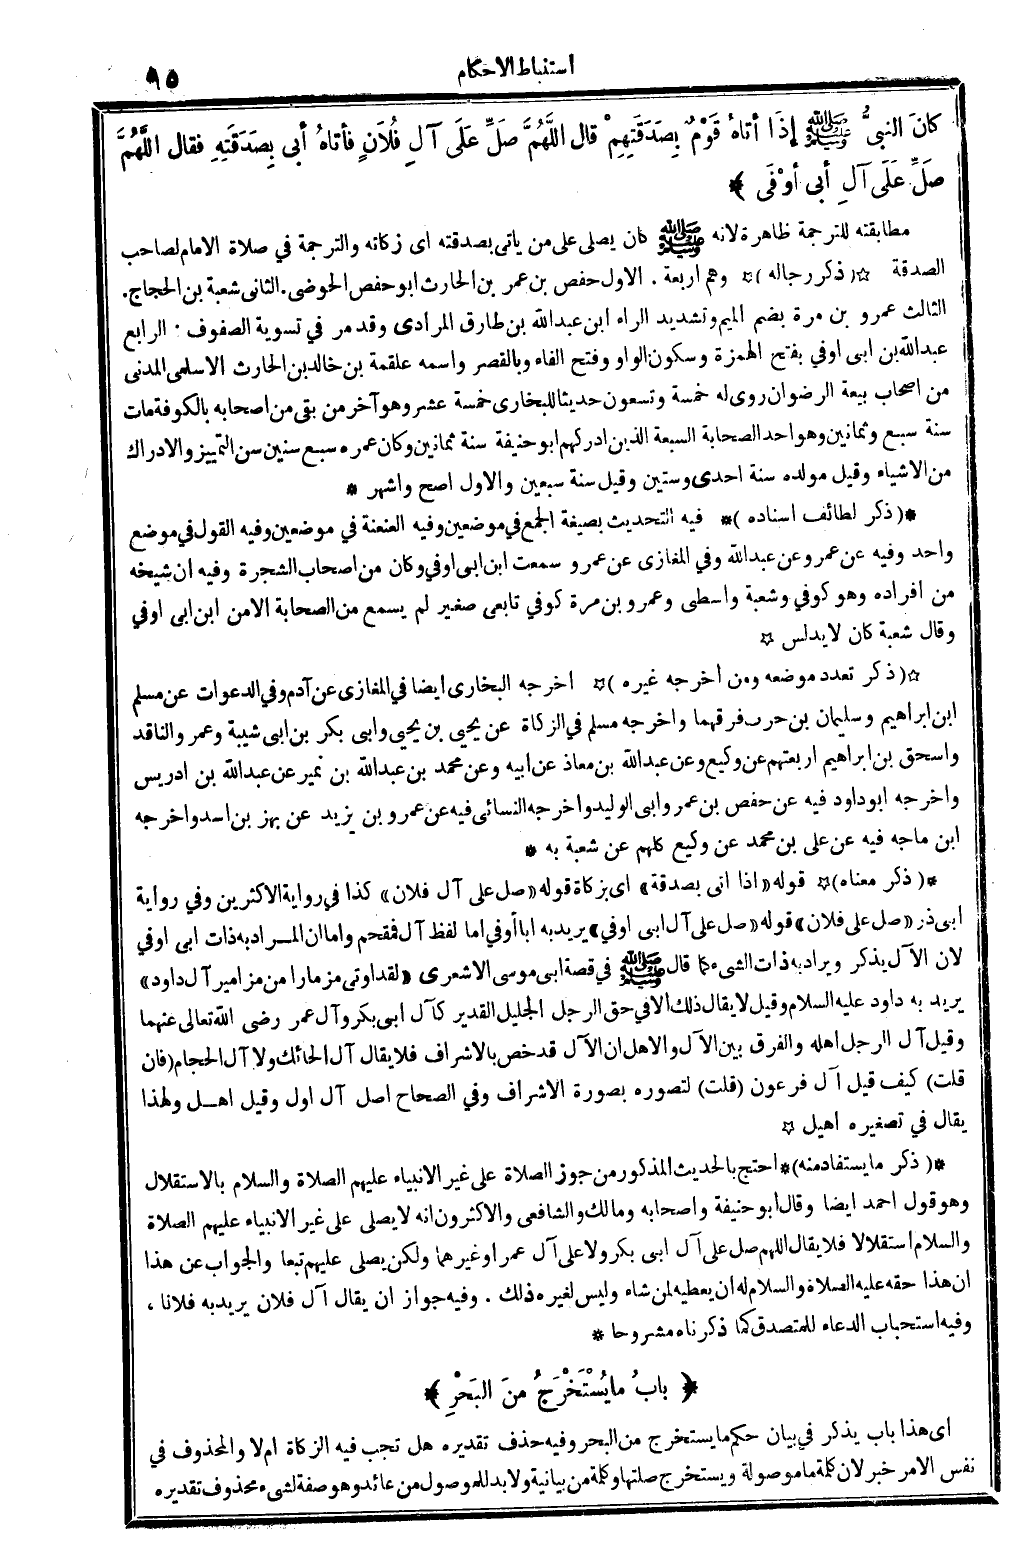 استنباط الاحكام
٩٥
كانَ النبيُّ ﷺ إذَا أتاهُ قَوْمٌ بِصَدَقَتِهِمْ قال اللَّهُمَّ صَلِّ عَلَى آلِ فُلَانٍ فأتاهُ أبى بِصَدَقَتِهِ فقال اللَّهُمَّ
صَلِّ عَلَى آلِ أبى أوْفَى ﴾
مطابقته للترجمة ظاهرة لانه ﷺ كان يصلى على من ياتى بصدقته اى زكاته والترجمة في صلاة الامام لصاحب
الصدقة ☆ ( ذكر رجاله ) ☆ وهم اربعة . الاول حفص بن عمر بن الحارث ابو حفص الحوضى . الثانى شعبة بن الحجاج .
الثالث عمرو بن مرة بضم الميم وتشديد الراء ابن عبدالله بن طارق المرادى وقد مر في تسوية الصفوف . الرابع
عبدالله بن ابى اوفي بفتح الهمزة وسكون الواو وفتح الفاء وبالقصر واسمه علقمة بن خالد بن الحارث الاسلمى المدنى
من اصحاب بيعة الرضوان روى له خمسة وتسعون حديثا للبخارى خمسة عشر وهو آخر من بقى من اصحابه بالكوفة مات
سنة سبع وثمانين وهو احد الصحابة السبعة الذين ادركهم ابو حنيفة سنة ثمانين وكان عمره سبع سنين سن التمييز والادراك
من الاشياء وقيل مولده سنة احدى وستين وقيل سنة سبعين والاول اصح واشهر *
* ( ذكر لطائف اسناده ) * فيه التحديث بصيغة الجمع في موضعين وفيه العنعنة في موضعين وفيه القول في موضع
واحد وفيه عن عمرو عن عبدالله وفي المغازى عن عمرو سمعت ابن ابى اوفي وكان من اصحاب الشجرة وفيه ان شيخه
من افراده وهو كوفي وشعبة واسطى وعمرو بن مرة كوفي تابعى صغير لم يسمع من الصحابة الا من ابن ابى اوفي
وقال شعبة كان لا يدلس ☆
☆ ( ذكر تعدد موضعه ومن أخرجه غيره ) ☆ اخرجه البخارى ايضا في المغازى عن آدم وفي الدعوات عن مسلم
ابن ابراهيم وسليمان بن حرب فرقهما واخرجه مسلم في الزكاة عن يحيى بن يحيى وابى بكر بن ابى شيبة وعمر والناقد
واسحق بن ابراهيم اربعتهم عن وكيع وعن عبدالله بن معاذ عن ابيه وعن محمد بن عبدالله بن نمير عن عبدالله بن ادريس
واخرجه ابو داود فيه عن حفص بن عمر وابى الوليد واخرجه النسائى فيه عن عمرو بن يزيد عن بهز بن اسد واخرجه
ابن ماجه فيه عن على بن محمد عن وكيع كلهم عن شعبة به *
* ( ذكر معناه ) ☆ قوله « اذا اتى بصدقة » اى بزكاة قوله « صل على آل فلان » كذا في رواية الاكثرين وفي رواية
ابى ذر « صل على فلان » قوله « صل على آل ابى اوفي » يريد به ابا أوفي اما لفظ آل فمقحم واما ان المـــراد به ذات ابى اوفي
لان الآل يذكر ويراد به ذات الشىء كما قال ﷺ في قصة ابى موسى الاشعرى « لقد اوتى مزمارا من مزامير آل داود »
يريد به داود عليه السلام وقيل لا يقال ذلك الا في حق الرجل الجليل القدير كآل ابى بكر وآل عمر رضى الله تعالى عنهما
وقيل آل الرجل اهله والفرق بين الآل والاهل ان الآل قد خص بالاشراف فلا يقال آل الحائك ولا آل الحجام (فان
قلت) كيف قيل آل فرعون (قلت) لتصوره بصورة الاشراف وفي الصحاح اصل آل اول وقيل اهـــل ولهذا
يقال في تصغيره اهيل ☆
* ( ذكر ما يستفاد منه ) * احتج بالحديث المذكور من جوز الصلاة على غير الانبياء عليهم الصلاة والسلام بالاستقلال
وهو قول احمد ايضا وقال أبو حنيفة واصحابه ومالك والشافعى والاكثرون انه لا يصلى على غير الانبياء عليهم الصلاة
والسلام استقلالا فلا يقال اللهم صل على آل ابى بكر ولا على آل عمر او غيرهما ولكن يصلى عليهم تبعا والجواب عن هذا
ان هذا حقه عليه الصلاة والسلام له ان يعطيه لمن شاء وليس لغيره ذلك . وفيه جواز ان يقال آل فلان يريد به فلانا ،
وفيه استحباب الدعاء للمتصدق كما ذكرناه مشروحا *
﴿ بابُ ما يُسْتَخْرَجُ منَ البَحْرِ ﴾
اى هذا باب يذكر في بيان حكم ما يستخرج من البحر وفيه حذف تقديره هل تجب فيه الزكاة ام لا والمحذوف في
نفس الامر خبر لان كلمة ما موصولة ويستخرج صلتها وكلمة من بيانية ولا بد للموصول من عائد وهو صفة لشىء محذوف تقديره